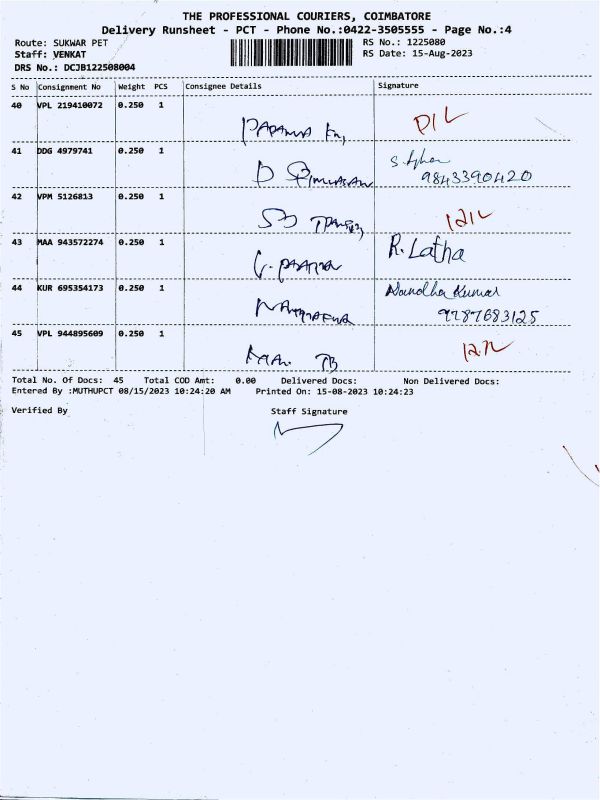 THE PROFESSIONAL COURIERS, COIMBATORE
Delivery Runsheet - PCT - Phone No.:0422-3505555 - Page No.:4
Route: SUKWAR PET
RS No.: 1225080
Staff: VENKAT
RS Date: 15-Aug-2023
DRS No.: DCJB122508004
S No Consignment No Weight PCS Consignee Details Signature
40 VPL 219410072 0.250 1
D/L
41 DDG 4979741 0.250 1
9843390420
42 VPM 5126813 0.250 1
43 MAA 943572274 0.250 1 R. Latha
44 KUR 695354173 0.250 1 Nandha Kumar
9787683125
45 VPL 944895609 0.250 1
Total No. Of Docs: 45 Total COD Amt: 0.00 Delivered Docs: Non Delivered Docs:
Entered By :MUTHUPCT 08/15/2023 10:24:20 AM Printed On: 15-08-2023 10:24:23
Verified By Staff Signature